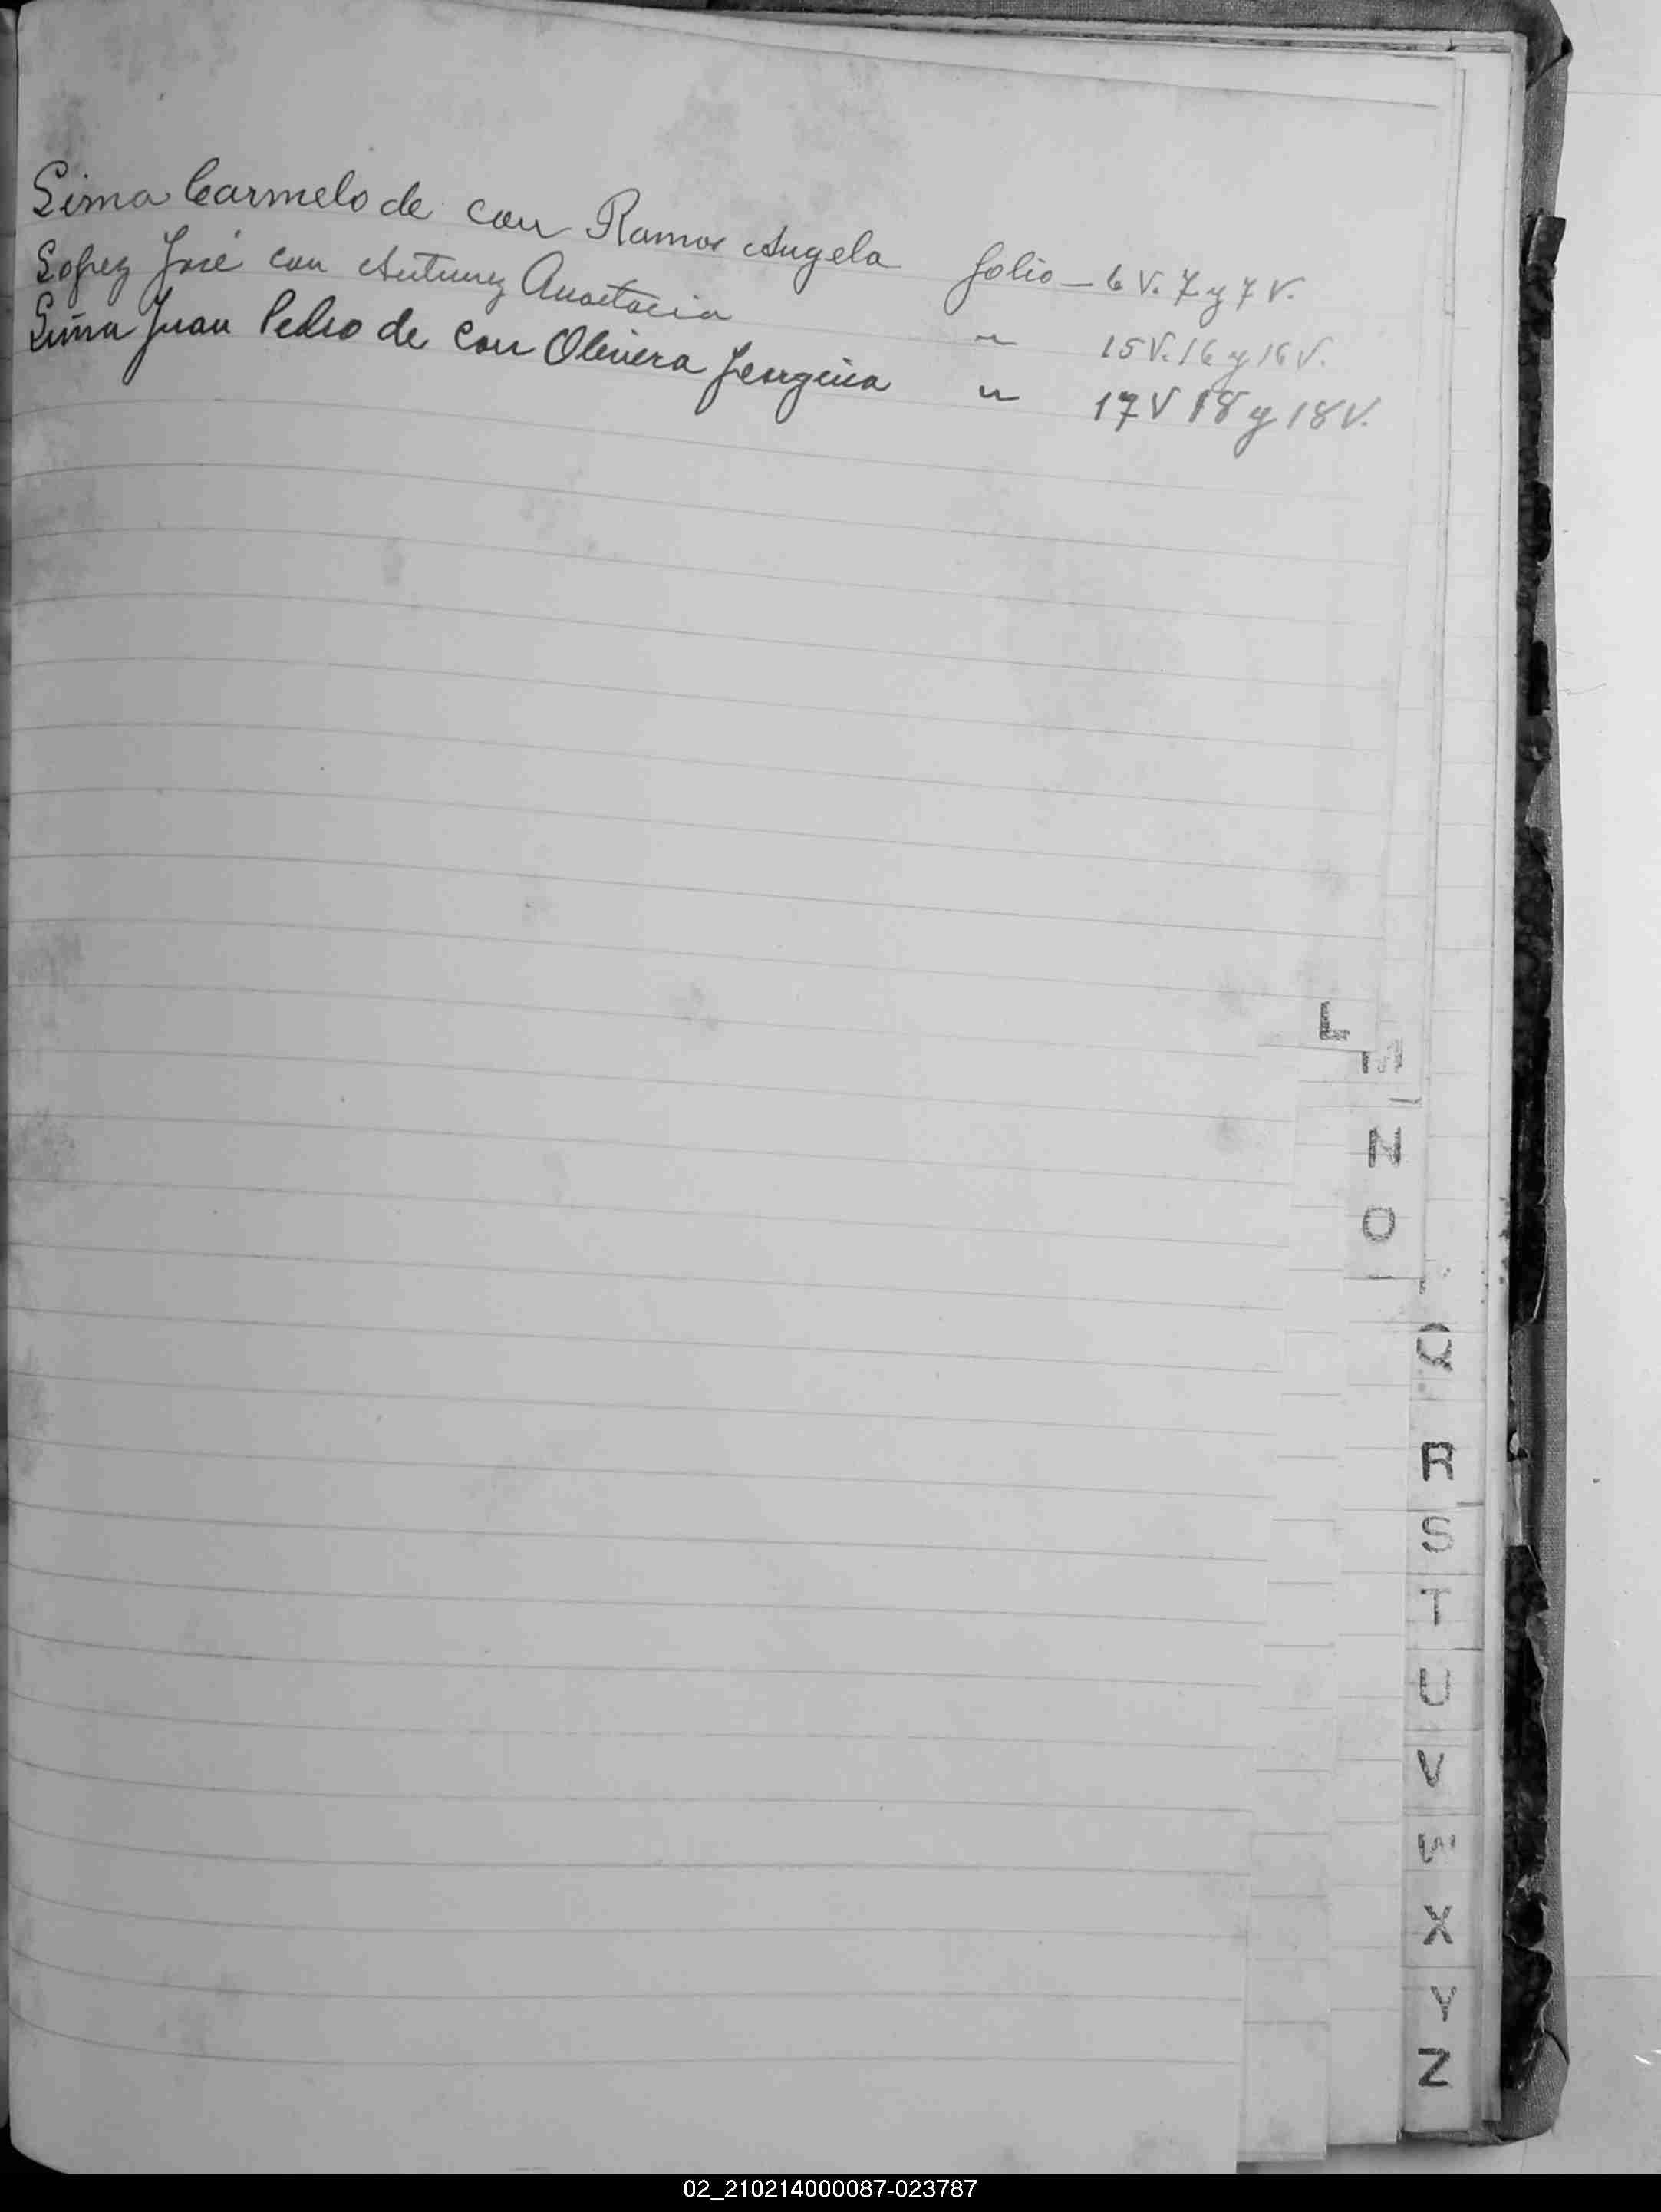 Lima Carmelo de con Ramos Angela folio - 6 V. 7 y 7 V.
Lopez José con Antunez Anastacia " 15 V. 16 y 16 V.
Lima Juan Pedro de con Olivera Georgina " 17 V 18 y 18 V.
L
M
N
O
Q
R
S
T
U
V
W
X
Y
Z
02_210214000087-023787